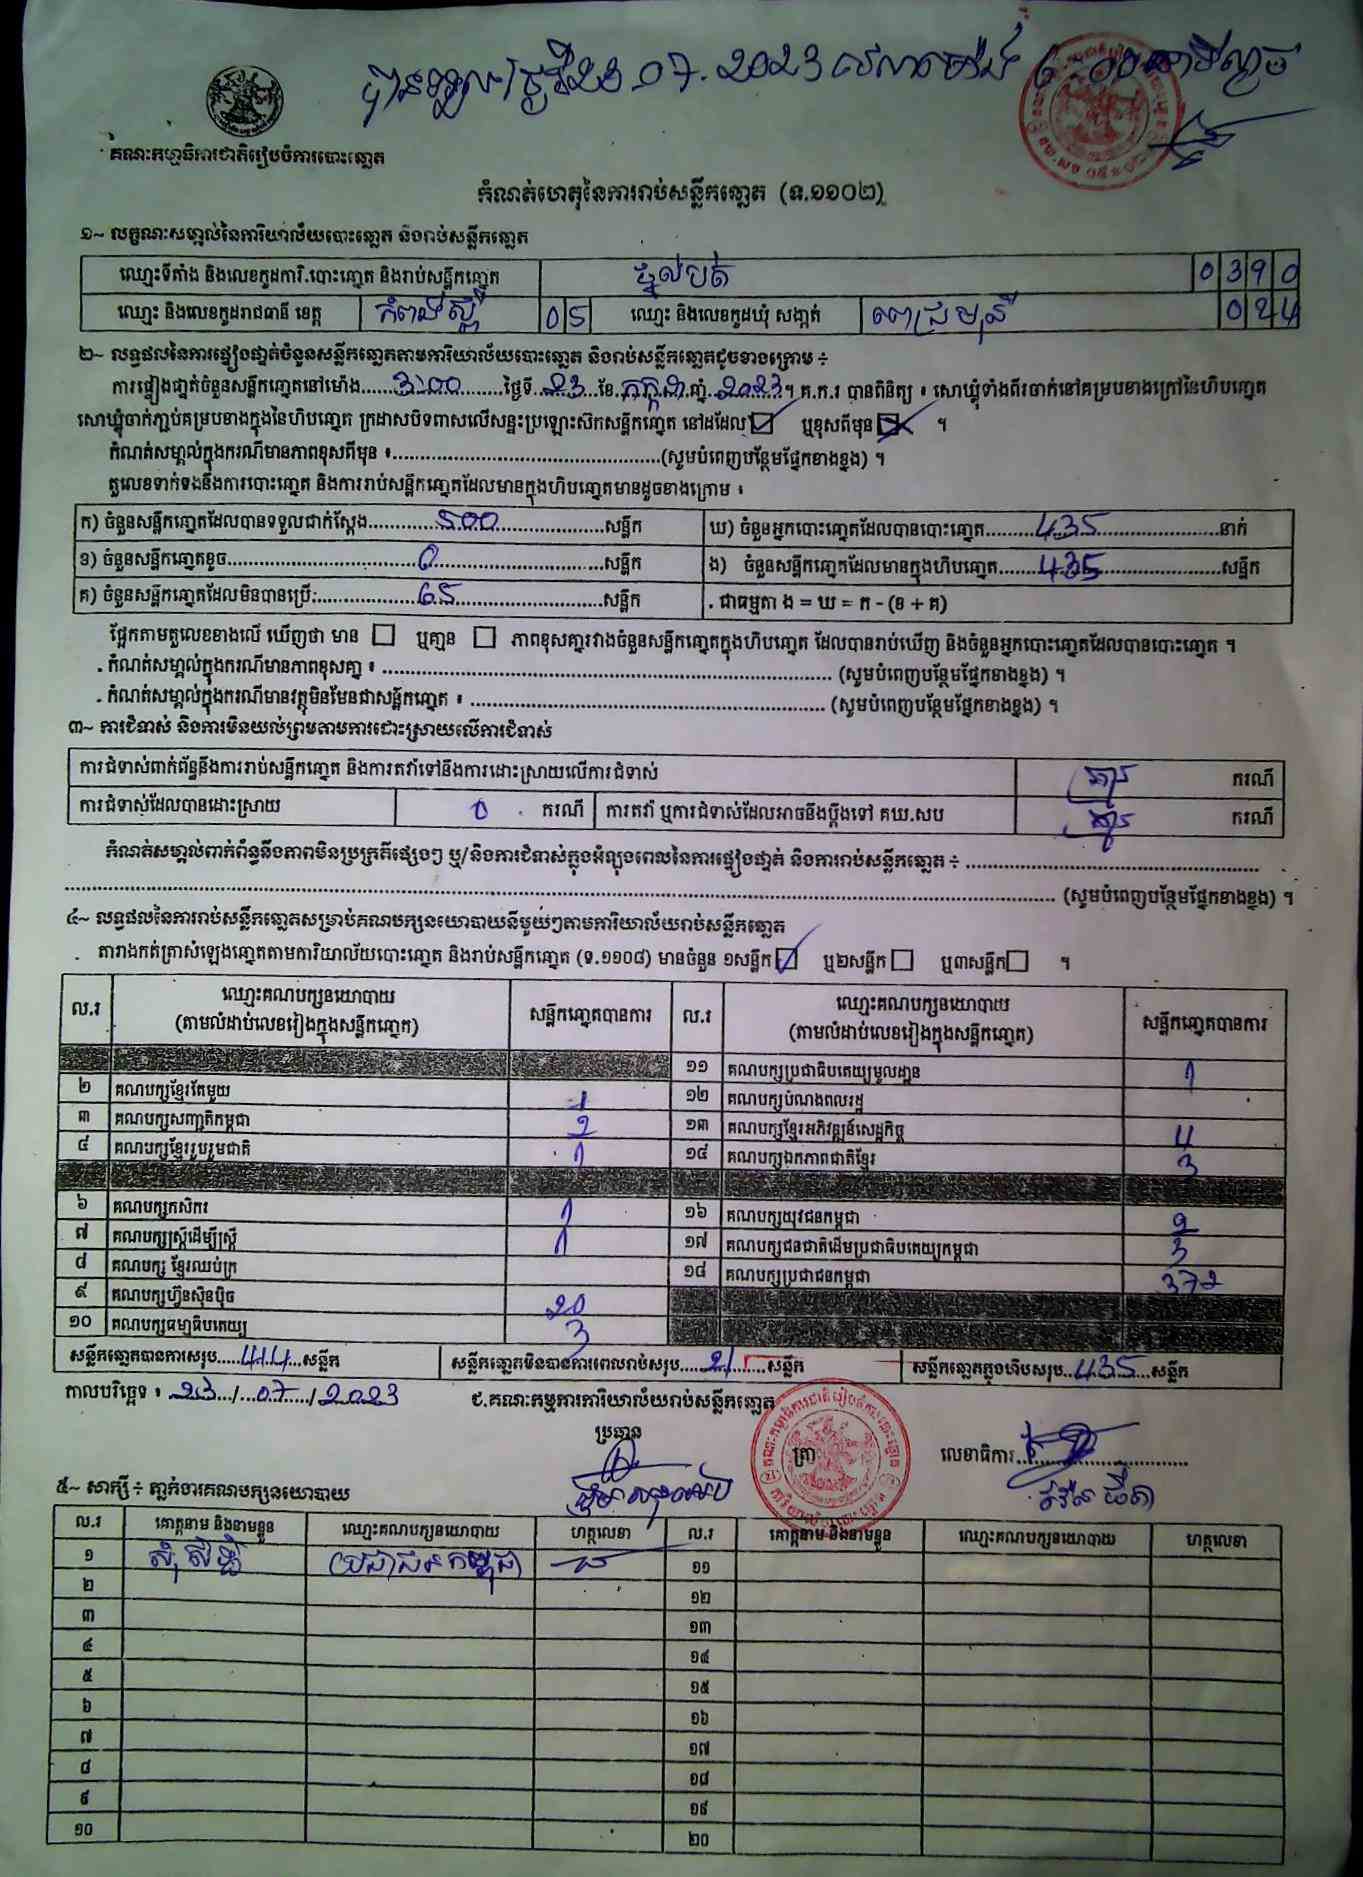 បានទទួលថ្ងៃទី 23.07.2023 វេលាម៉ោង
គណៈកម្មាធិការជាតិរៀបចំការបោះឆ្នោត
កំណត់ហេតុនៃការរាប់សន្លឹកឆ្នោត (ទ.១១០២)
១~ លក្ខណៈសម្គាល់នៃការិយាល័យបោះឆ្នោត និងរាប់សន្លឹកឆ្នោត
ឈ្មោះទីតាំង និងលេខកូដការិ.បោះឆ្នោត និងរាប់សន្លឹកឆ្នោត 0390
ឈ្មោះ និងលេខកូដរាជធានី ខេត្ត កំពង់ស្ពឺ 05 ឈ្មោះ និងលេខកូដឃុំ សង្កាត់ ពេជ្រមុនី 024
២~ លទ្ធផលនៃការផ្ទៀងផ្ទាត់ចំនួនសន្លឹកឆ្នោតតាមការិយាល័យបោះឆ្នោត និងរាប់សន្លឹកឆ្នោតដូចខាងក្រោម ÷
ការផ្ទៀងផ្ទាត់ចំនួនសន្លឹកឆ្នោតនៅម៉ោង 3:00 ថ្ងៃទី 23 ខែ កក្កដា ឆ្នាំ 2023 ។ គ.ក.រ បានពិនិត្យ ៖ សោឃ្មុំទាំងពីរចាក់នៅគម្របខាងក្រៅនៃហិបឆ្នោត
សោឃ្មុំចាក់ភ្ជាប់គម្របខាងក្នុងនៃហិបឆ្នោត ក្រដាសបិទពាសលើសន្ទះប្រឡោះស៊កសន្លឹកឆ្នោត នៅដដែល ឬខុសពីមុន ។
កំណត់សម្គាល់ក្នុងករណីមានភាពខុសពីមុន ៖ (សូមបំពេញបន្ថែមផ្នែកខាងខ្នង) ។
តួលេខទាក់ទងនឹងការបោះឆ្នោត និងការរាប់សន្លឹកឆ្នោតដែលមានក្នុងហិបឆ្នោតមានដូចខាងក្រោម ៖
ក) ចំនួនសន្លឹកឆ្នោតដែលបានទទួលជាក់ស្តែង 500 សន្លឹក ឃ) ចំនួនអ្នកបោះឆ្នោតដែលបានបោះឆ្នោត 435 នាក់
ខ) ចំនួនសន្លឹកឆ្នោតខូច 0 សន្លឹក ង) ចំនួនសន្លឹកឆ្នោតដែលមានក្នុងហិបឆ្នោត 435 សន្លឹក
គ) ចំនួនសន្លឹកឆ្នោតដែលមិនបានប្រើ: 65 សន្លឹក . ជាធម្មតា ង = ឃ = ក - (ខ + គ)
ផ្អែកតាមតួលេខខាងលើ ឃើញថា មាន ឬគ្មាន ភាពខុសគ្នារវាងចំនួនសន្លឹកឆ្នោតក្នុងហិបឆ្នោត ដែលបានរាប់ឃើញ និងចំនួនអ្នកបោះឆ្នោតដែលបានបោះឆ្នោត ។
. កំណត់សម្គាល់ក្នុងករណីមានភាពខុសគ្នា ៖ (សូមបំពេញបន្ថែមផ្នែកខាងខ្នង) ។
. កំណត់សម្គាល់ក្នុងករណីមានវត្ថុមិនមែនជាសន្លឹកឆ្នោត ៖ (សូមបំពេញបន្ថែមផ្នែកខាងខ្នង) ។
៣~ ការជំទាស់ និងការមិនយល់ព្រមតាមការដោះស្រាយលើការជំទាស់
ការជំទាស់ពាក់ព័ន្ធនឹងការរាប់សន្លឹកឆ្នោត និងការតវ៉ាទៅនឹងការដោះស្រាយលើការជំទាស់ គ្មាន ករណី
ការជំទាស់ដែលបានដោះស្រាយ 0 ករណី ការតវ៉ា ឬការជំទាស់ដែលអាចនឹងប្តឹងទៅ គឃ.សប គ្មាន ករណី
កំណត់សម្គាល់ពាក់ព័ន្ធនឹងភាពមិនប្រក្រតីផ្សេងៗ ឬ/និងការជំទាស់ក្នុងអំឡុងពេលនៃការផ្ទៀងផ្ទាត់ និងការរាប់សន្លឹកឆ្នោត ÷
(សូមបំពេញបន្ថែមផ្នែកខាងខ្នង) ។
៤~ លទ្ធផលនៃការរាប់សន្លឹកឆ្នោតសម្រាប់គណបក្សនយោបាយនីមួយៗតាមការិយាល័យរាប់សន្លឹកឆ្នោត
តារាងកត់ត្រាសំឡេងឆ្នោតតាមការិយាល័យបោះឆ្នោត និងរាប់សន្លឹកឆ្នោត (ទ.១១០៨) មានចំនួន ១សន្លឹក ឬ២សន្លឹក ឬ៣សន្លឹក ។
ល.រ ឈ្មោះគណបក្សនយោបាយ (តាមលំដាប់លេខរៀងក្នុងសន្លឹកឆ្នោត) សន្លឹកឆ្នោតបានការ ល.រ ឈ្មោះគណបក្សនយោបាយ (តាមលំដាប់លេខរៀងក្នុងសន្លឹកឆ្នោត) សន្លឹកឆ្នោតបានការ
១១ គណបក្សប្រជាធិបតេយ្យមូលដ្ឋាន 1
២ គណបក្សខ្មែរតែមួយ 1 ១២ គណបក្សបំណងពលរដ្ឋ
៣ គណបក្សសញ្ជាតិកម្ពុជា 2 ១៣ គណបក្សខ្មែរអភិវឌ្ឍន៍សេដ្ឋកិច្ច 4
៤ គណបក្សខ្មែររួបរួមជាតិ 1 ១៤ គណបក្សឯកភាពជាតិខ្មែរ 3
៦ គណបក្សកសិករ 1 ១៦ គណបក្សយុវជនកម្ពុជា 2
៧ គណបក្សស្ត្រីដើម្បីស្ត្រី 1 ១៧ គណបក្សជនជាតិដើមប្រជាធិបតេយ្យកម្ពុជា 3
៨ គណបក្ស ខ្មែរឈប់ក្រ ១៨ គណបក្សប្រជាជនកម្ពុជា 372
៩ គណបក្សហ៊្វុនស៊ិនប៉ិច 20
១០ គណបក្សធម្មាធិបតេយ្យ 3
សន្លឹកឆ្នោតបានការសរុប 414 សន្លឹក សន្លឹកឆ្នោតមិនបានការពេលរាប់សរុប 21 សន្លឹក សន្លឹកឆ្នោតក្នុងហិបសរុប 435 សន្លឹក
កាលបរិច្ឆេទ ៖ 23/07/2023 ជ.គណៈកម្មការការិយាល័យរាប់សន្លឹកឆ្នោត
ប្រធាន ត្រា លេខាធិការ
៥~ សាក្សី ÷ ភ្នាក់ងារគណបក្សនយោបាយ
ល.រ គោត្តនាម និងនាមខ្លួន ឈ្មោះគណបក្សនយោបាយ ហត្ថលេខា ល.រ គោត្តនាម និងនាមខ្លួន ឈ្មោះគណបក្សនយោបាយ ហត្ថលេខា
១ សុំ សិទ្ធិ ប្រជាជនកម្ពុជា ១១
២ ១២
៣ ១៣
៤ ១៤
៥ ១៥
៦ ១៦
៧ ១៧
៨ ១៨
៩ ១៩
១០ ២០